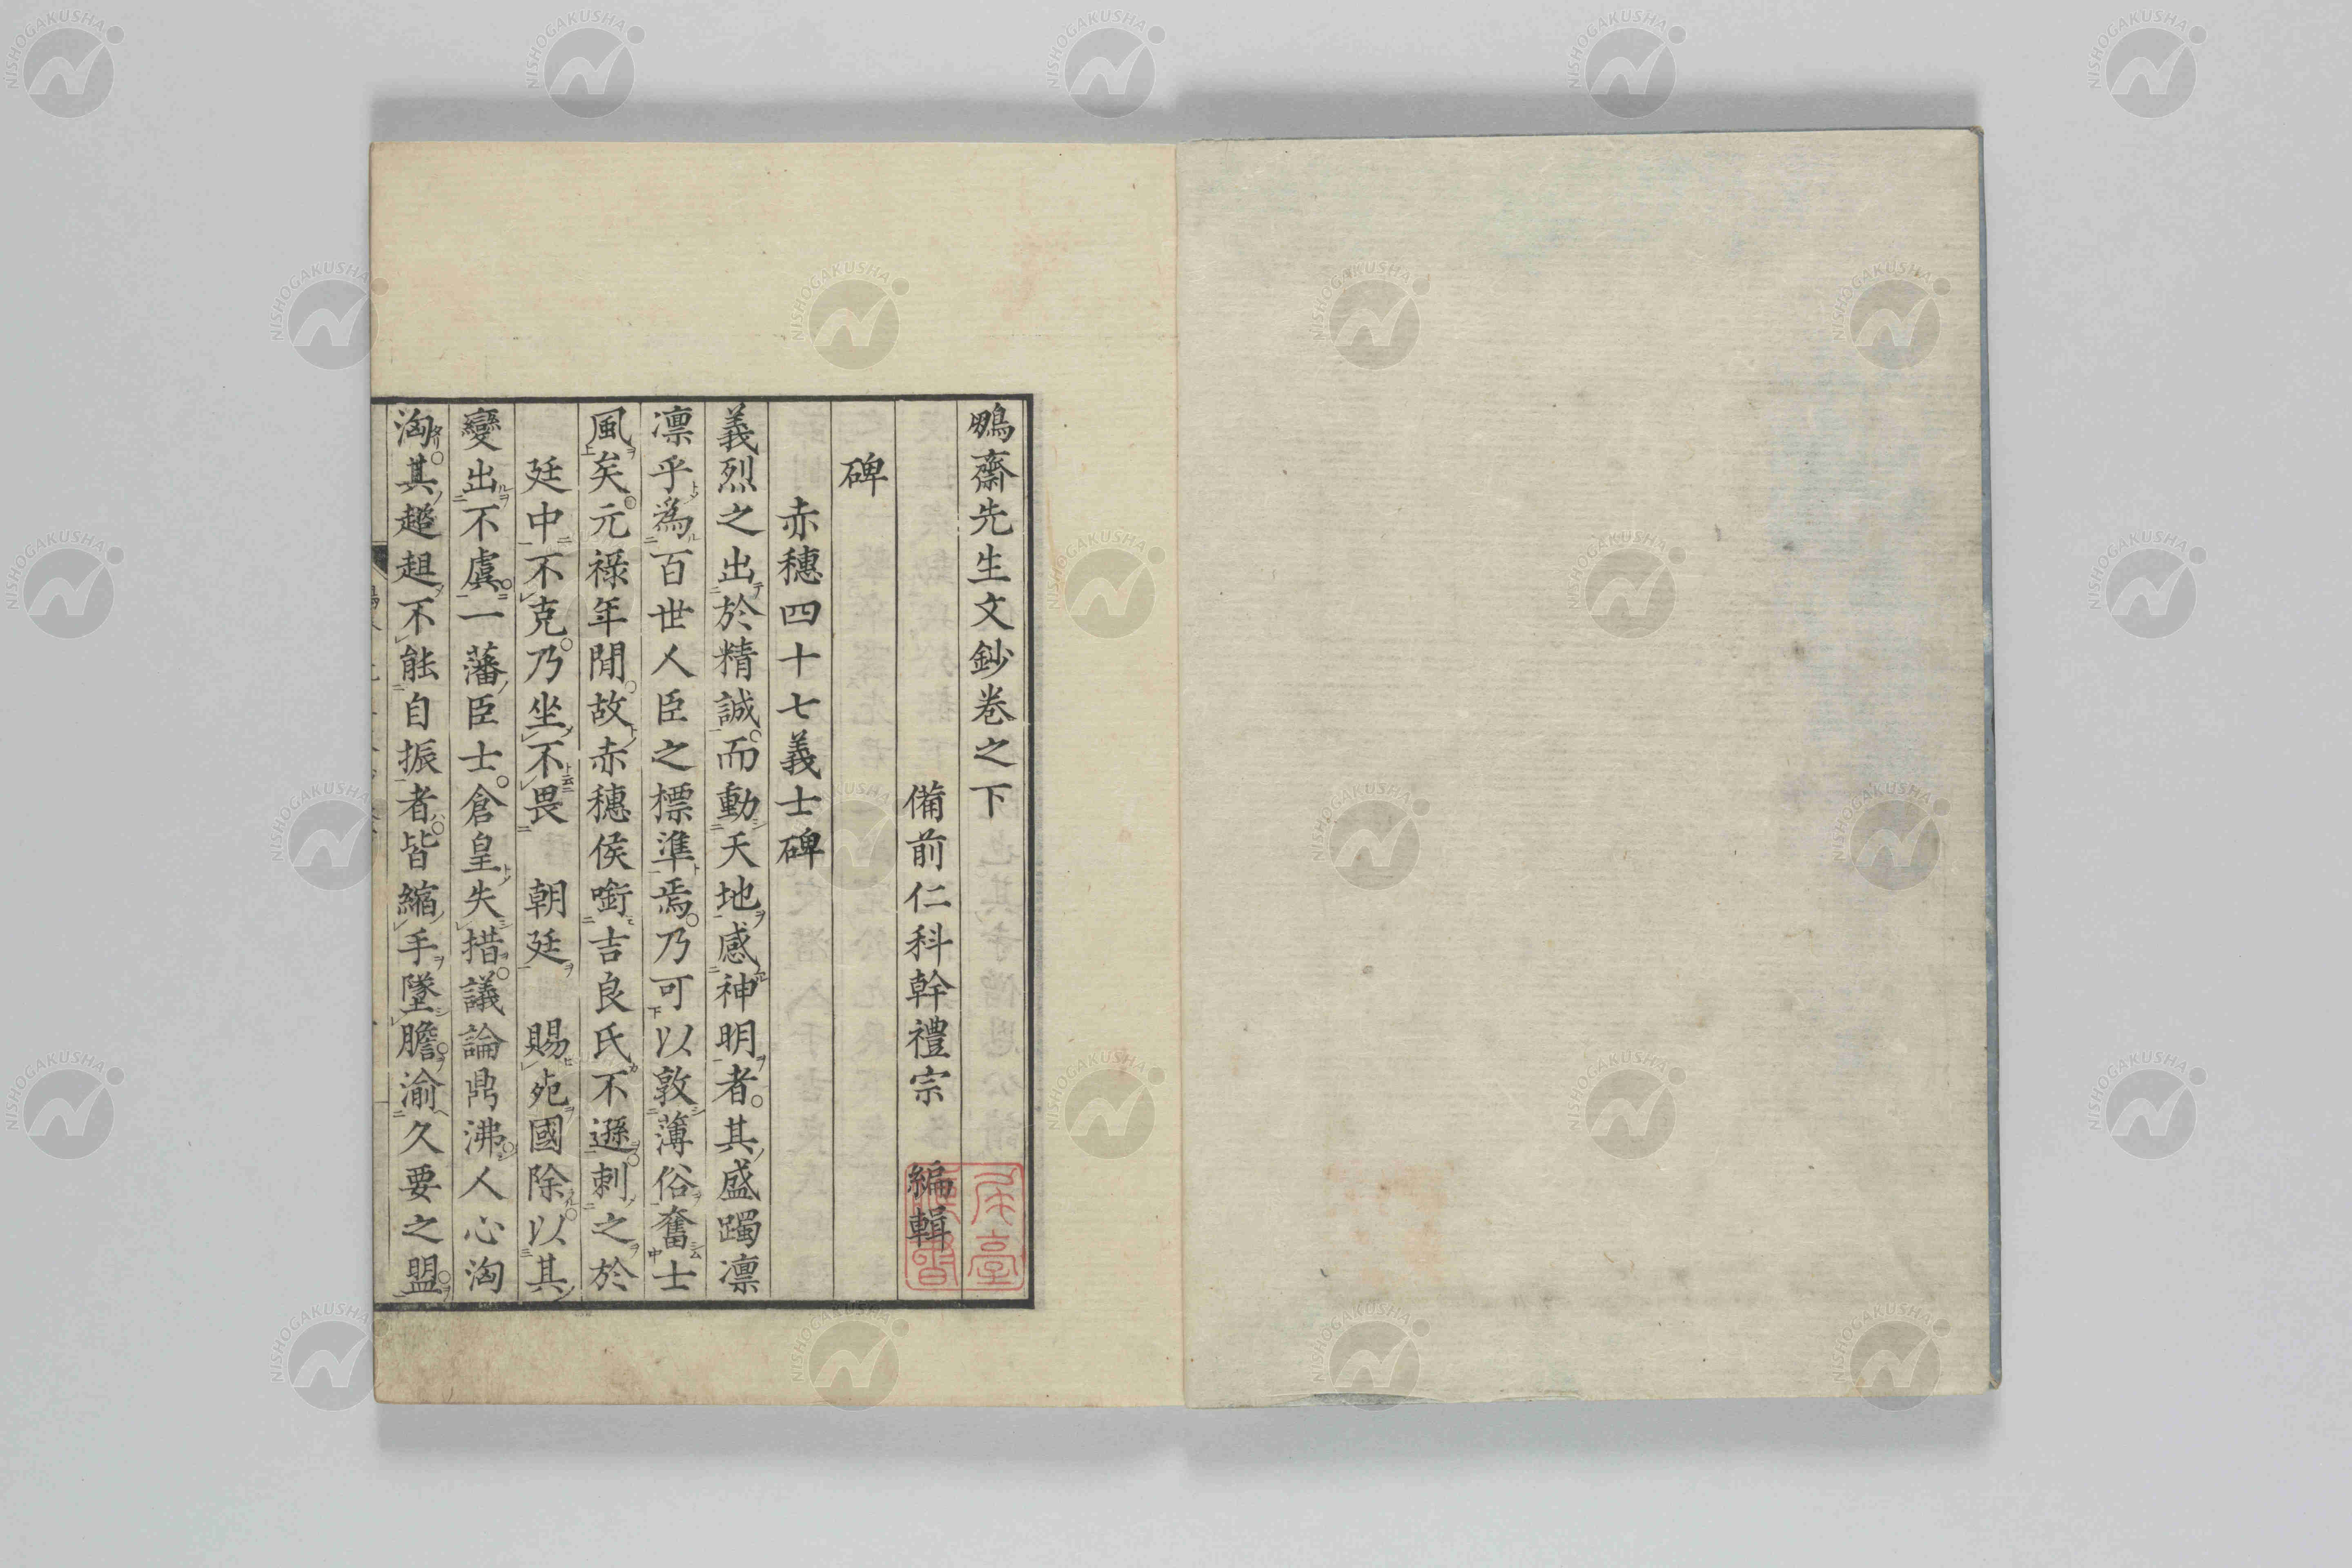 鵬齋先生文鈔卷之下
備前仁科幹禮宗　編輯
碑
赤穗四十七義士碑
義烈之出於精誠而動天地感神明者其盛躅凛
凛乎為百世人臣之標準焉乃可以敦薄俗奮士
風矣元祿年間故赤穗侯銜吉良氏不遜刺之於
廷中不克乃坐不畏　朝廷　賜死國除以其
變出不虞一藩臣士倉皇失措議論鼎沸人心洶
洶其趦趄不能自振者皆縮手墜膽渝久要之盟
NISHOGAKUSHA